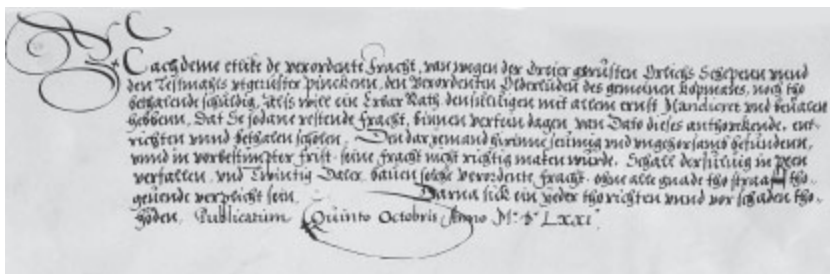 Nachdeme etlike de verordente Fracht, van wegen der Dreier gerüsten Orlichs Schepenn vnnd
den Testmahls vtgerüster Pinckenn, den Verordenten Olderlüden des gemeinen Kopmans, noch tho
bethalende schüldig, Alss will ein Erbar Rath densüluigen mit allem ernst Mandieret vnd beualen
hebbenn, Dat Se sodane restende Fracht, binnen vertein dagen van Dato dieses anthorekende, ent-
richten vnnd bethalen scholen. Den dar yemand hirinne seumig vnd vngehorsamb befundenn,
vnnd in vorbestimpter frist seine fracht nicht richtig maken würde, Schall dersüluig in Peen
verfallen vnd Twintig Daler bauen solche verordente fracht ohne alle gnade tho straaff tho-
geuende verplicht sein. Darna sick ein yeder tho richten vnnd vor schaden tho-
höden. Publicatum Quinto Octobris Anno M. D. LXXI.